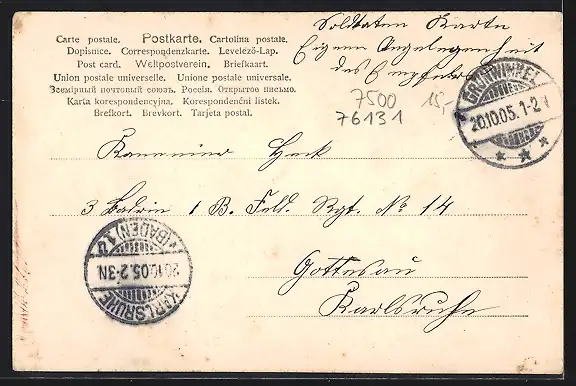 Carte postale. Postkarte. Cartolina postale.
Dopisnice. Correspondenzkarte. Levelező-Lap.
Post card. Weltpostverein. Briefkaart.
Union postale universelle. Unione postale universale.
Всемірный почтовый союзъ. Россія. Открытое письмо.
Karta korespondencyjna. Korespondenční lístek.
Brefkort. Brevkort. Tarjeta postal.
Soldaten Karte
Eigene Angelegenheit
des Empfängers
7500 15,-
76131
GRÜNWINKEL
20.10.05. 1-2
Kanonier Heck
3 Batrie 1 B. Feld. Rgt. No 14
Gottesau
Karlsruhe
KARLSRUHE (BADEN) 1
20.10.05. 2-3N